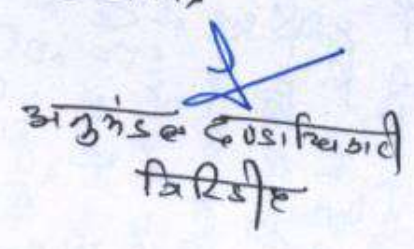 अनुमंडल दण्डाधिकारी
गिरिडीह